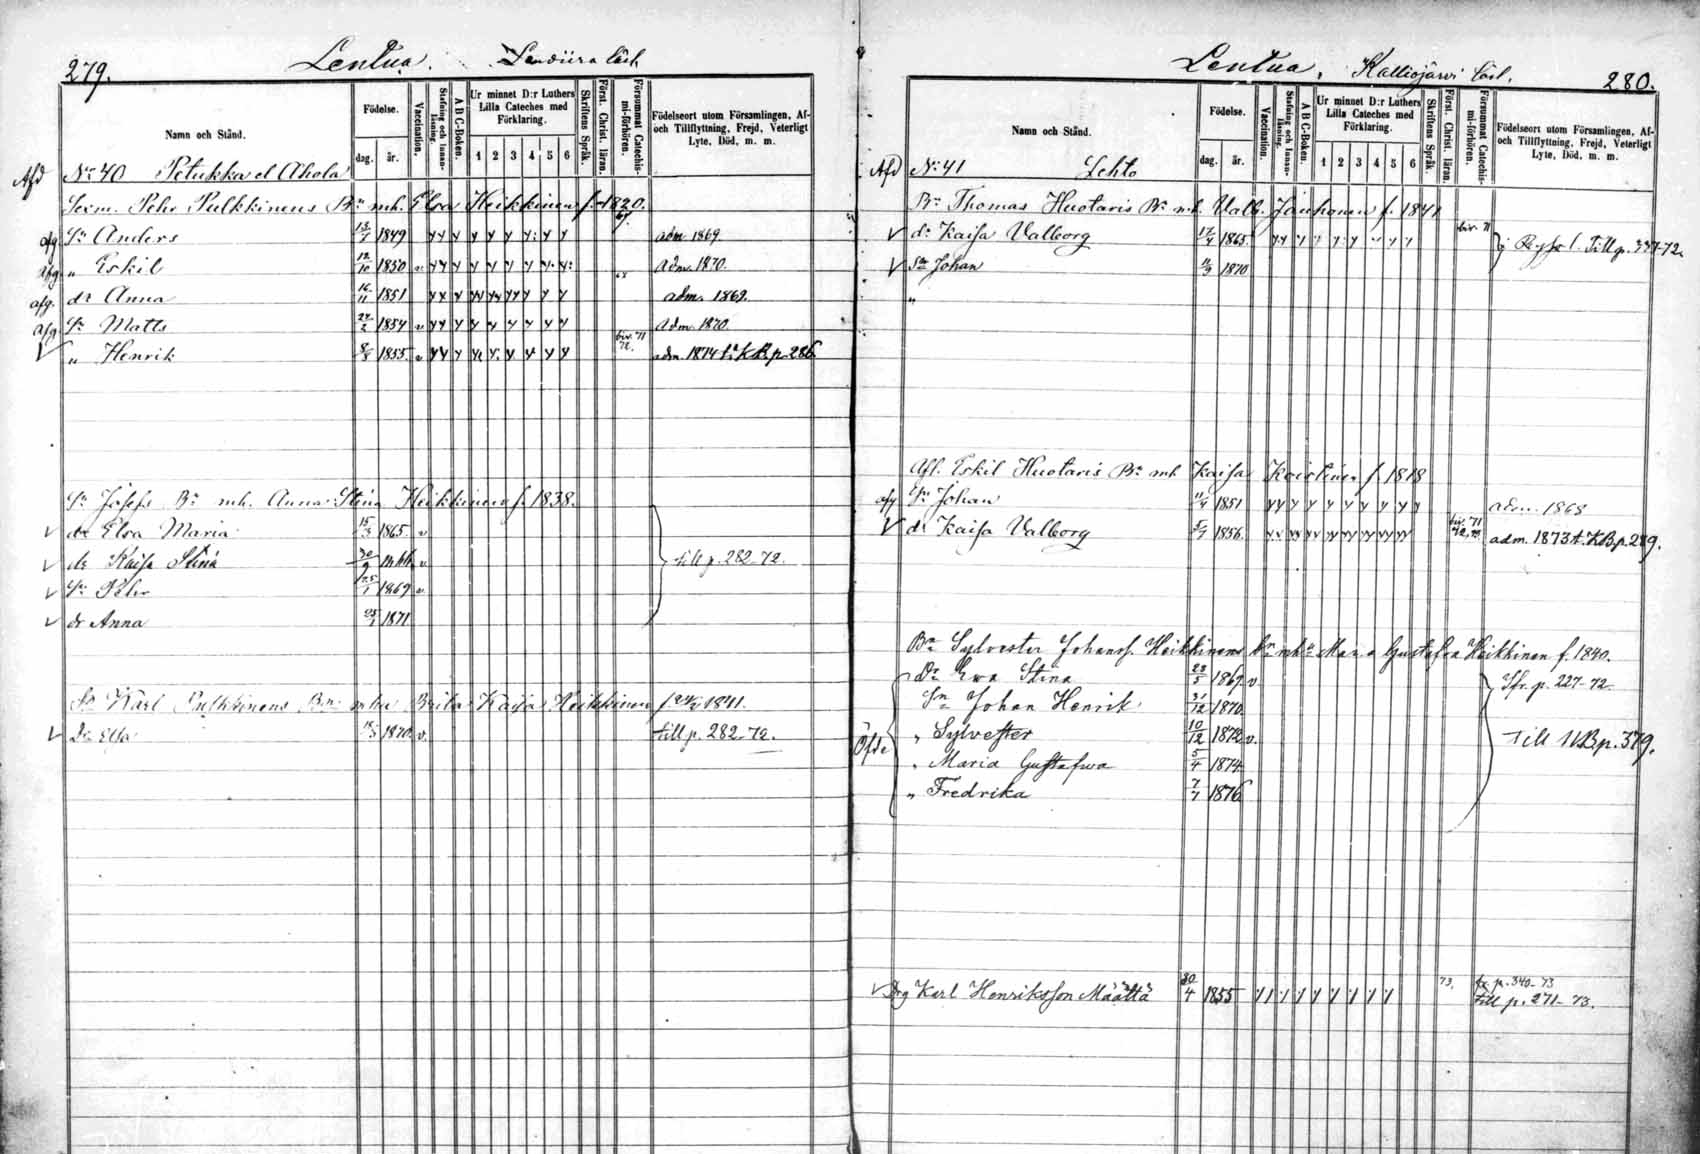 279. Lentua. Lendiira läsl.
Namn och Stånd.
Födelse.
dag. år.
Vaccination.
Stafning och Innan-läsning.
A B C-Boken.
Ur minnet D:r Luthers Lilla Cateches med Förklaring.
1 2 3 4 5 6
Skriftens Språk.
Först. Christ. läran.
Försummat Catechis-mi-förhören.
Födelseort utom Församlingen, Af- och Tillflyttning, Frejd, Veterligt Lyte, Död, m. m.
Afd No 40 Petukka el Ahola
Sexm. Pehr Pulkkinens Bn mh. Elsa Heikkinen f. 1820.
afg Sn Anders 13/7 1849 67. adm 1869.
afg " Eskil 12/10 1850 v adm. 1870.
afg. dr Anna 16/11 1851 68 adm. 1869.
afg. Sn Matts 24/2 1854 v adm. 1870.
" Henrik 8/8 1855 v biv. 71 72. adm. 1874 t. KB p. 286.
Sn Josefs Bn mh. Anna Stina Heikkinen f. 1838.
dr Elsa Maria 15/3 1865. v
dr Kaisa Stina 30/9 v till p. 282-72.
Sn Pehr 25/1 1869 v
dr Anna 25/1 1871
Sn Karl Pulkkinens Bn m hu Brita Kaisa Heikkinen 1841.
Dr Elsa 15/3 1870 v. till p. 282-72.
Lentua. Kalliojärvi läsl. 280.
Namn och Stånd.
Födelse.
dag. år.
Vaccination.
Stafning och Innan-läsning.
A B C-Boken.
Ur minnet D:r Luthers Lilla Cateches med Förklaring.
1 2 3 4 5 6
Skriftens Språk.
Först. Christ. läran.
Försummat Catechis-mi-förhören.
Födelseort utom Församlingen, Af- och Tillflyttning, Frejd, Veterligt Lyte, Död, m. m.
Afd No 41 Lehto
Bn Thomas Huotaris Bn mh Valb. Jauhonen f. 1841
dr Kaisa Valborg 17/4 1865. biv. 71 Till p. 347-72.
Sn Johan 11/9 1870
"
Afl. Eskil Huotaris Bn mh Kaisa Koistinen f. 1818
afg Sn Johan 11/4 1851 adm. 1868
dr Kaisa Valborg 5/7 1856. biv. 71 adm. 1873 t. KB p. 289.
Bn Sylvester Johanss. Heikkinens bn mh Maria Gustafva Heikkinen f. 1840.
Dr Ewa Stina 23/5 1867 v Ifr. p. 227-72.
Sn Johan Henrik 31/12 1870
" Sylvester 10/12 1872 v. Till NB p. 379.
" Maria Gustafwa 5/4 1874
" Fredrika 7/7 1876
Drg Karl Henriksson Määttä 30/4 1855 73. fr. p. 340-73
till p. 271-73.